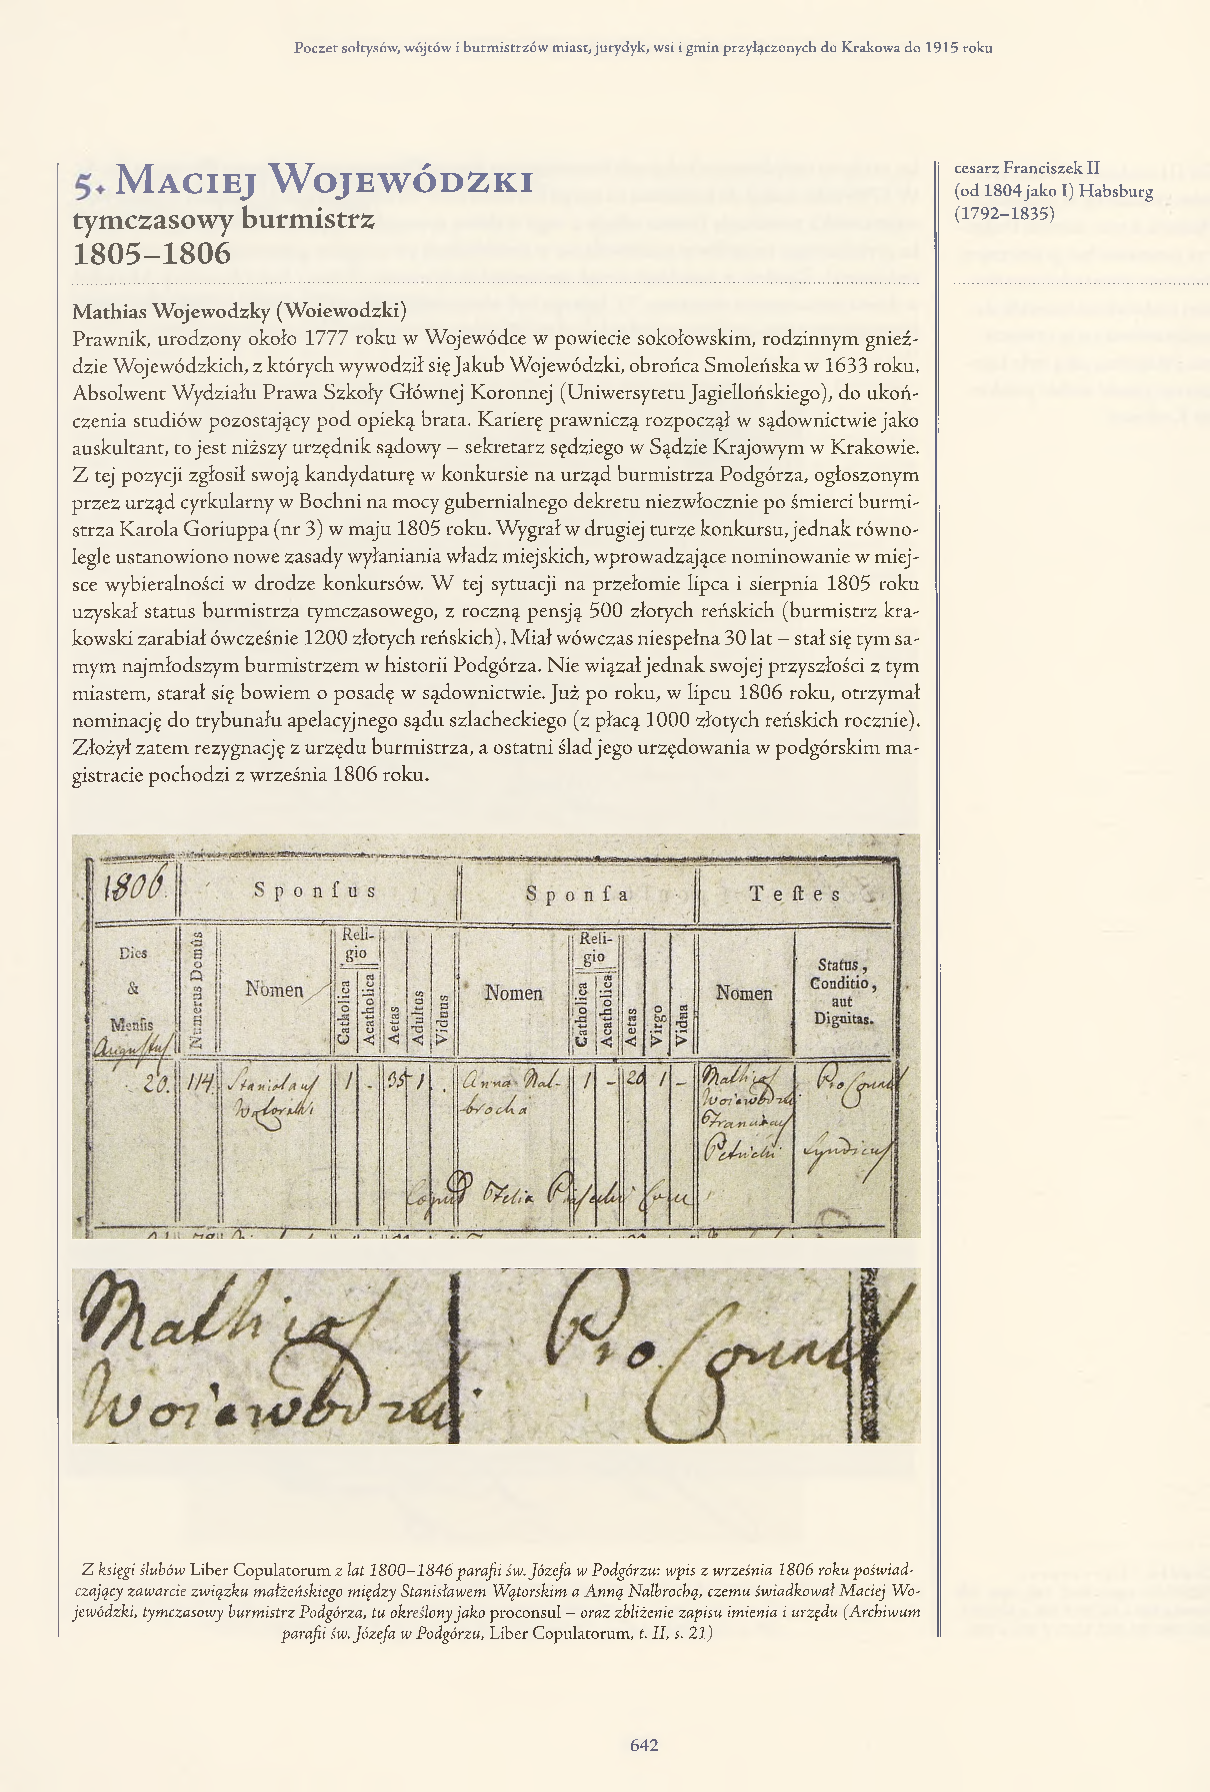 Poczet sołtysów, wójtów i burmistrzów miast, jurydyk, wsi i gmin przyłączonych do Krakowa do 1915 roku
5. Maciej Wojewódzki
tymczasowy burmistrz
1805–1806
cesarz Franciszek II
(od 1804 jako I) Habsburg
(1792–1835)
Mathias Wojewodzky (Woiewodzki)
Prawnik, urodzony około 1777 roku w Wojewódce w powiecie sokołowskim, rodzinnym gnieź-
dzie Wojewódzkich, z których wywodził się Jakub Wojewódzki, obrońca Smoleńska w 1633 roku.
Absolwent Wydziału Prawa Szkoły Głównej Koronnej (Uniwersytetu Jagiellońskiego), do ukoń-
czenia studiów pozostający pod opieką brata. Karierę prawniczą rozpoczął w sądownictwie jako
auskultant, to jest niższy urzędnik sądowy – sekretarz sędziego w Sądzie Krajowym w Krakowie.
Z tej pozycji zgłosił swoją kandydaturę w konkursie na urząd burmistrza Podgórza, ogłoszonym
przez urząd cyrkularny w Bochni na mocy gubernialnego dekretu niezwłocznie po śmierci burmi-
strza Karola Goriuppa (nr 3) w maju 1805 roku. Wygrał w drugiej turze konkursu, jednak równo-
legle ustanowiono nowe zasady wyłaniania władz miejskich, wprowadzające nominowanie w miej-
sce wybieralności w drodze konkursów. W tej sytuacji na przełomie lipca i sierpnia 1805 roku
uzyskał status burmistrza tymczasowego, z roczną pensją 500 złotych reńskich (burmistrz kra-
kowski zarabiał ówcześnie 1200 złotych reńskich). Miał wówczas niespełna 30 lat – stał się tym sa-
mym najmłodszym burmistrzem w historii Podgórza. Nie wiązał jednak swojej przyszłości z tym
miastem, starał się bowiem o posadę w sądownictwie. Już po roku, w lipcu 1806 roku, otrzymał
nominację do trybunału apelacyjnego sądu szlacheckiego (z płacą 1000 złotych reńskich rocznie).
Złożył zatem rezygnację z urzędu burmistrza, a ostatni ślad jego urzędowania w podgórskim ma-
gistracie pochodzi z września 1806 roku.
1806. Sponſus Sponſa Teſtes
Dies & Menſis Numerus Domûs Nomen Religio Catholica Acatholica Aetas Adultus Viduus Nomen Religio Catholica Acatholica Aetas Virgo Vidua Nomen Status, Conditio, aut Dignitas.
Augustus
20. 114. Stanislaus 1 - 35 1 . Anna Nal- 1 - 20 1 - Mathias Pro Consul
brocha Woiewodzki
Franciscus
Syndicus
Mathias Pro Consul
Woiewodzki
Z księgi ślubów Liber Copulatorum z lat 1800–1846 parafii św. Józefa w Podgórzu: wpis z września 1806 roku poświad-
czający zawarcie związku małżeńskiego między Stanisławem Wątorskim a Anną Nalbrochą, czemu świadkował Maciej Wo-
jewódzki, tymczasowy burmistrz Podgórza, tu określony jako proconsul – oraz zbliżenie zapisu imienia i urzędu (Archiwum
parafii św. Józefa w Podgórzu, Liber Copulatorum, t. II, s. 21)
642